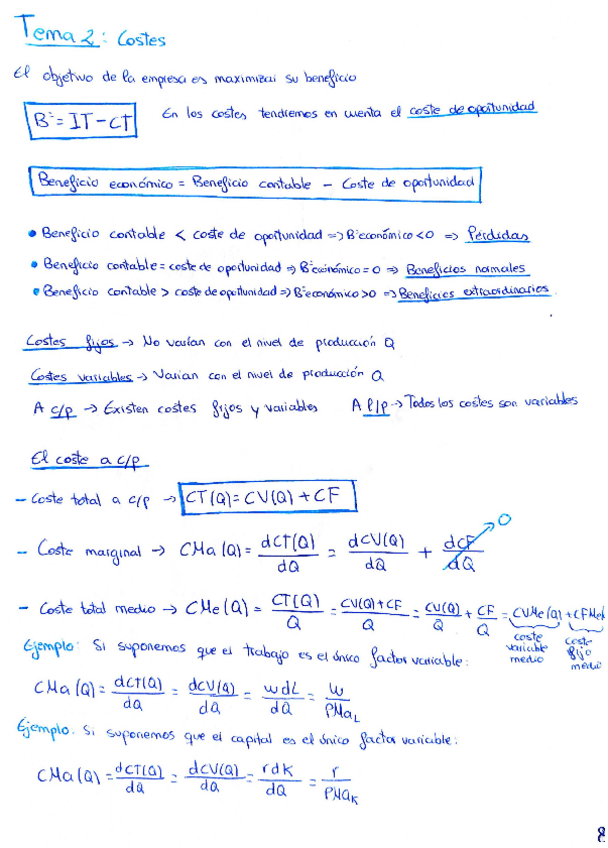 Tema 2: Costes
El objetivo de la empresa es maximizar su beneficio
Bº = IT - CT
En los costes tendremos en cuenta el coste de oportunidad
Beneficio económico = Beneficio contable - Coste de oportunidad
• Beneficio contable < coste de oportunidad => Bº económico < 0 => Pérdidas
• Beneficio contable = coste de oportunidad => Bº económico = 0 => Beneficios normales
• Beneficio contable > coste de oportunidad => Bº económico > 0 => Beneficios extraordinarios
Costes fijos → No varían con el nivel de producción Q
Costes variables → Varian con el nivel de producción Q
A c/p → Existen costes fijos y variables A l/p → Todos los costes son variables
El coste a c/p
- Coste total a c/p → CT(Q) = CV(Q) + CF
- Coste marginal → CMa(Q) = dCT(Q)/dQ = dCV(Q)/dQ + dCF/dQ → 0
- Coste total medio → CMe(Q) = CT(Q)/Q = CV(Q)+CF/Q = CV(Q)/Q + CF/Q = CVMe(Q) + CFMe(Q)
coste variable medio
coste fijo medio
Ejemplo: Si suponemos que el trabajo es el único factor variable:
CMa(Q) = dCT(Q)/dQ = dCV(Q)/dQ = wdL/dQ = w/PMaL
Ejemplo: Si suponemos que el capital es el único factor variable:
CMa(Q) = dCT(Q)/dQ = dCV(Q)/dQ = rdK/dQ = r/PMaK
8